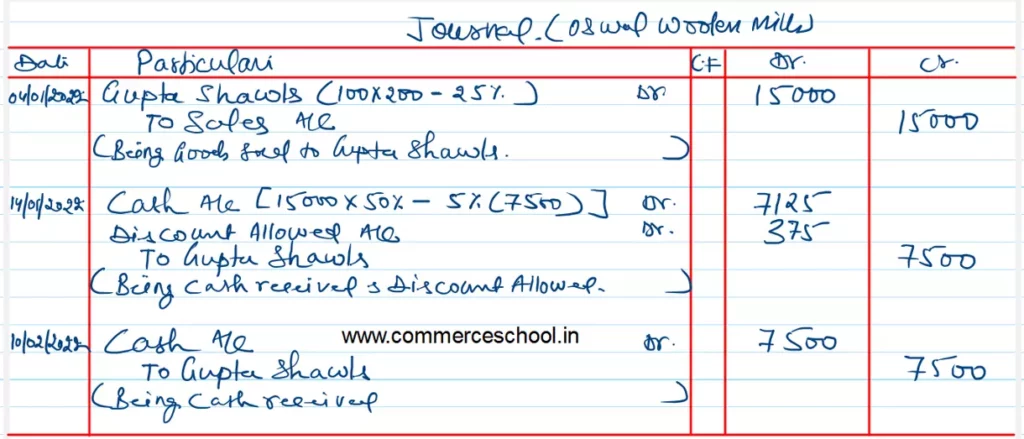 Journal (Oswal Woolen Mills)
Date Particulars C.F Dr. Cr.
04/01/2022 Gupta Shawls (100x200 - 25%) Dr 15000
To Sales A/c 15000
(Being Goods sold to Gupta Shawls. )
14/01/2022 Cash A/c [15000 x 50% - 5% (7500)] Dr. 7125
Discount Allowed A/c Dr. 375
To Gupta Shawls 7500
(Being cash received & Discount Allowed. )
10/02/2022 Cash A/c www.commerceschool.in Dr. 7500
To Gupta Shawls 7500
(Being Cash received )